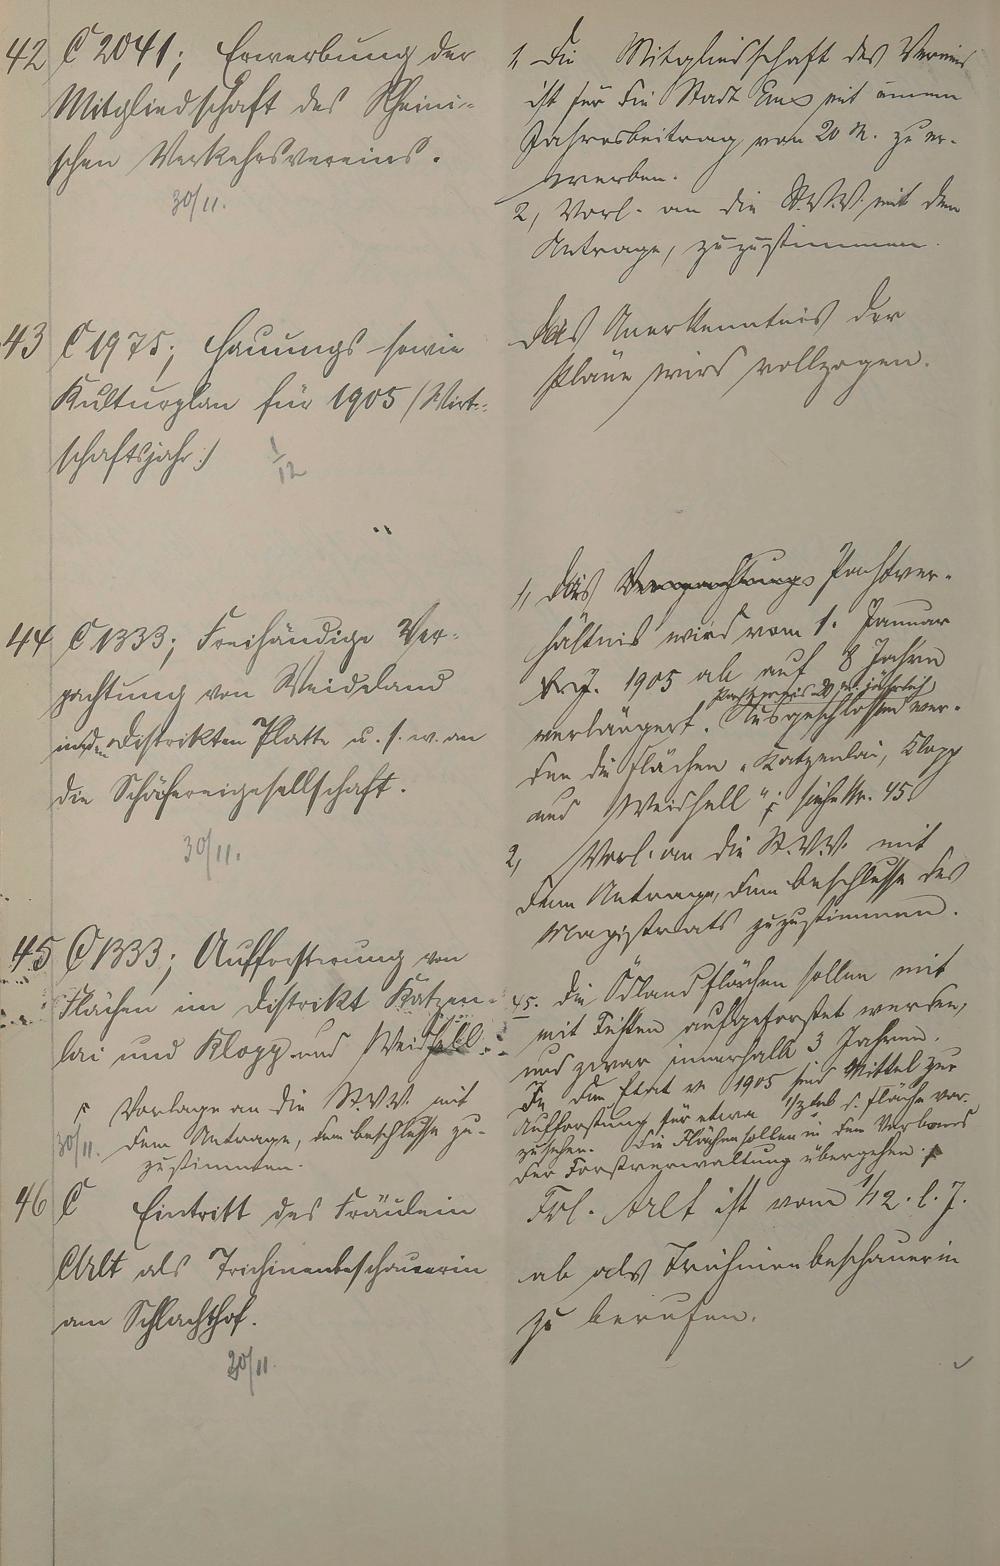 42 C 2041; Erwerbung der
Mitgliedschaft des Rheini-
schen Verkehrsvereins.
30/11.
1, Die Mitgliedschaft des Vereins
ist für die Stadt Ems mit einem
Jahresbeitrag von 20 M. zu er-
werben.
2, Vorl. an die St.V.V. mit dem
Antrage, zuzustimmen.
43 C 1975; Hauungs- sowie
Kulturplan für 1905 (Wirt-
schaftsjahr.)
1/12
Das Anerkenntnis der
Pläne wird vollzogen.
44 C 1333; Freihändige Ver-
pachtung von Weideland
in den Distrikten Platte u.s.w. an
die Schäfereigesellschaft.
30/11.
1, Das Verpachtungs Pachtver-
hältnis wird vom 1. Januar
1905 ab auf 8 Jahre
Pachtpreis 20 M. jährlich
verlängert. Ausgeschlossen wer-
den die Flächen "Katzenlai, Klopp
und Weidhell"; siehe Nr. 45.
2, Vorl. an die St.V.V. mit
dem Antrage, dem Beschlusse des
Magistrats zuzustimmen.
45 C 1333; Aufforstung von
Flächen im Distrikt Katzen-
lai und Klopp und Weidhell.
45. Die Ödlandflächen sollen mit
mit Fichten aufgeforstet werden,
und zwar innerhalb 3 Jahren.
In den Etat v. 1905 sind Mittel zur
Aufforstung für etwa 1/3 der Fläche vor-
zusehen. Die Flächen sollen in den Verband
der Forstverwaltung übergehen.
Vorlage an die St.V.V. mit
dem Antrage, dem Beschlusse zu-
zustimmen.
30/11.
46 C Eintritt des Fräulein
Alt als Trichinenbeschauerin
am Schlachthof.
30/11.
Frl. Alt ist vom 1/12. l. J.
ab als Trichinenbeschauerin
zu berufen.